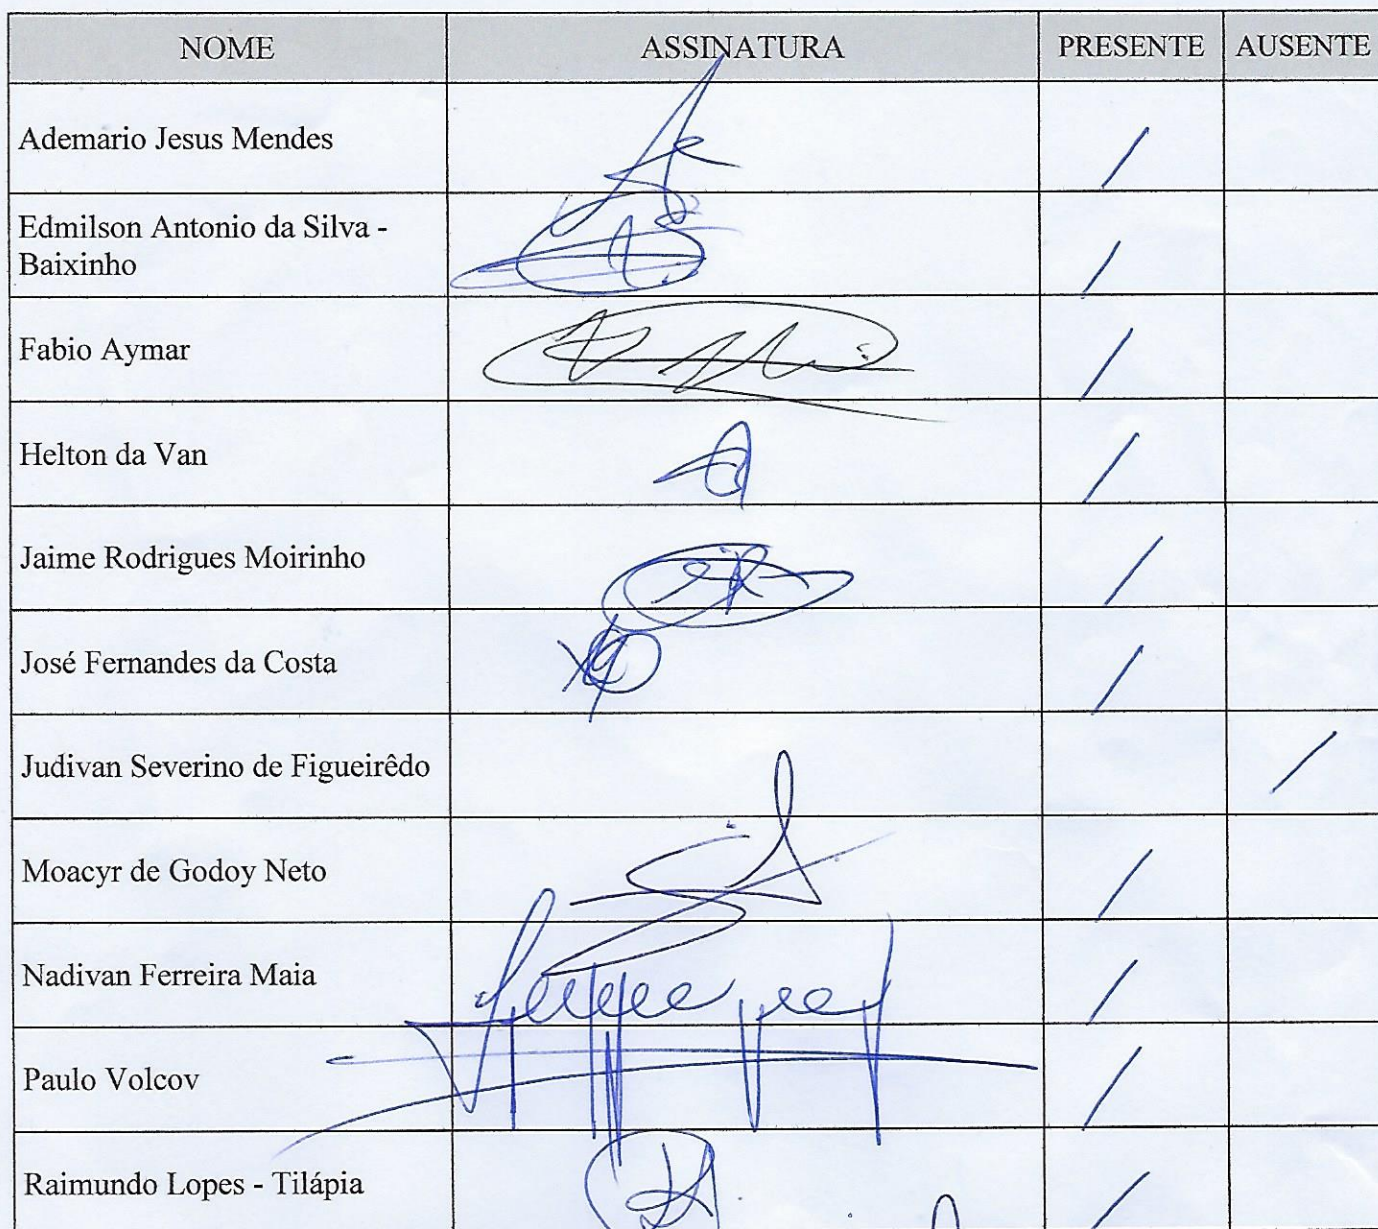 NOME ASSINATURA PRESENTE AUSENTE
Ademario Jesus Mendes /
Edmilson Antonio da Silva -
Baixinho /
Fabio Aymar /
Helton da Van /
Jaime Rodrigues Moirinho /
José Fernandes da Costa /
Judivan Severino de Figueirêdo /
Moacyr de Godoy Neto /
Nadivan Ferreira Maia /
Paulo Volcov /
Raimundo Lopes - Tilápia /